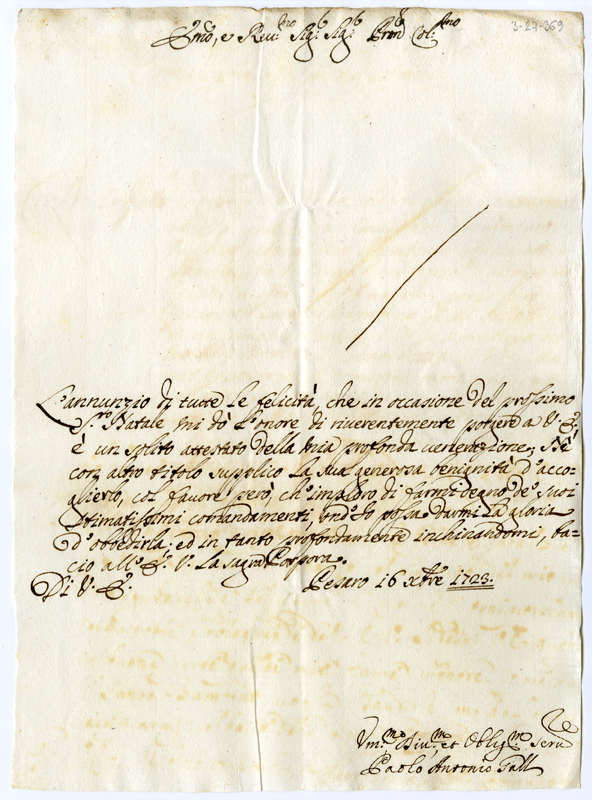 3-27-369
Em̃o, e Rev.mo Sig.r Sig.r Pron̄ Col.mo
L'annunzio di tutte le felicità, che in occasione del prossimo
S.mo Natale mi dò l'onore di riverentemente porgere a V. E.
è un solito attestato della mia profonda venerazione; Nè
con altro titolo supplico la sua generosa benignità d'acco-
glierlo, col favore però, ch'imploro di farmi degno de' suoi
stimatissimi comandamenti, ond'Io possa darmi la gloria
d'obbedirla; ed in tanto profondamente inchinandomi, ba-
cio all'E. V. la sagra Porpora.
Di V. E. Pesaro 16 xbre 1723.
Um.mo Div.mo, et Oblig.mo Serv
Paolo Antonio